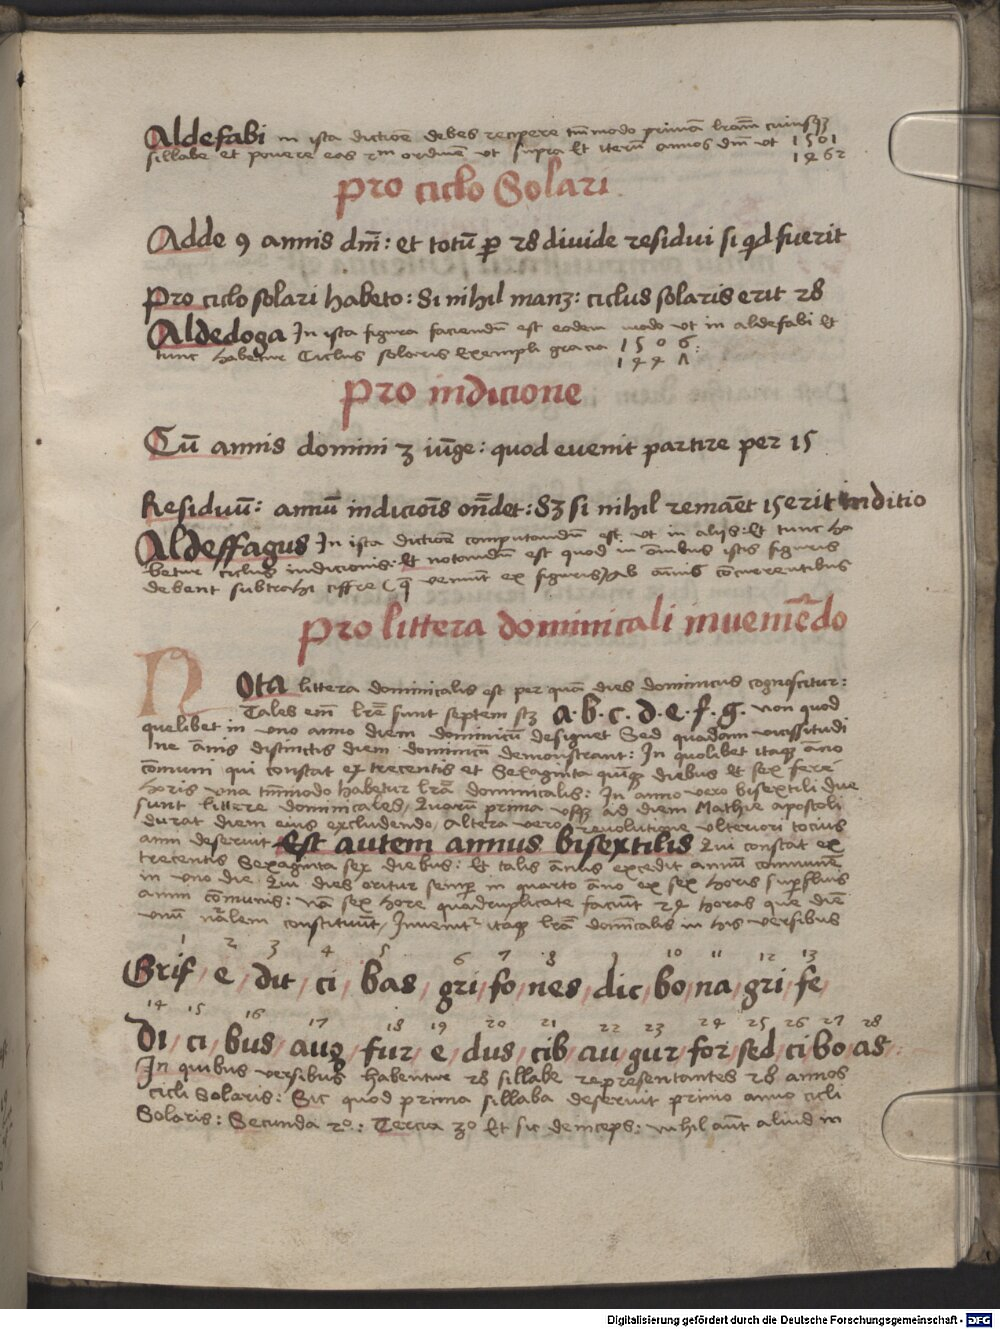 Aldefabi in ista dictiõe debes recipere tm̃modo primã lrãm cuiusqȝ
sillabe et ponere eas 2m ordinẽ vt supra Et iterũ annos dm̃ vt 1501
1462
pro ciclo Solari
Adde 9 annis dm̃: et totũ ꝑ 28 divide residui si qd fuerit
pro ciclo solari habeto: Si nihil manȝ: ciclus solaris erit 28
Aldedoga In ista figura faciendũ est eodem modo vt in aldefabi Et
tunc habetur Ciclus solaris Exempli gracia 1506:
pro indicione
Cũ annis domini 3 iũge: quod evenit partire per 15
Residuũ: annũ indiciõis oñdet: Sȝ si nihil remãet 15 erit inditio
Aldeffagus In ista dictiõe computandũ est vt in alijs: Et tunc ha
betur ciclus indicionis. Et notandũ est quod in õnibus istis figuris
debent subtrahi ciffre q̃ veniũt ex figuris annis cõcurrentibus
pro littera dominicali inveniẽdo
Nota littera dominicalis est per quã dies dominicus cognoscitur:
Tales em̃ lrẽ sunt septem sȝ a. b. c. d. e. f. g. non quod
quelibet in vno anno diem dominicũ designet Sed quadam vicissitudi
ne ãnis distinctis diem dominicũ demonstrant: In quolibet itaqȝ ãno
cõmuni qui constat ex trecentis et Sexaginta quĩqȝ diebus et sex fere
horis vna tm̃modo habetur lrã dominicalis: In anno vero bisextili due
sunt littere dominicales/ Quarũ prima vsqȝ ad diem Mathie apostoli
durat diem eius excludendo/ Altera vero revolutione vlteriori tocius
anni deservit Est autem annus bisextilis Qui constat ex
trecentis Sexaginta sex diebus: Et talis ãnus excedit annũ communẽ
in vno die Qui dies oritur semꝑ in quarto ãno ex sex horis suꝑfluis
anni cõmunis: nã sex hore quadruplicate faciũt 24 horas que diẽ
vnũ nãlem constituũt/ Invenit̃ itaqȝ lrã dom̃icalis in his versibus
1 2 3 4 5 6 7 8 9 10 11 12 13
Grif / e / dit / ci / bas / gri / fo / nes / dic / bo / na / gri / fe /
14 15 16 17 18 19 20 21 22 23 24 25 26 27 28
Di / ci / bus / auꝫ / fur / e / dus / cib / au / gur / for / sed / ci / bo / as
In quibus versibus habentur 28 sillabe representantes 28 annos
cicli Solaris: Sic quod prima sillaba deservit primo anno cicli
Solaris: Secunda 2º: Tercia 3º Et sic deinceps: nihil aũt aliud in
Digitalisierung gefördert durch die Deutsche Forschungsgemeinschaft - DFG